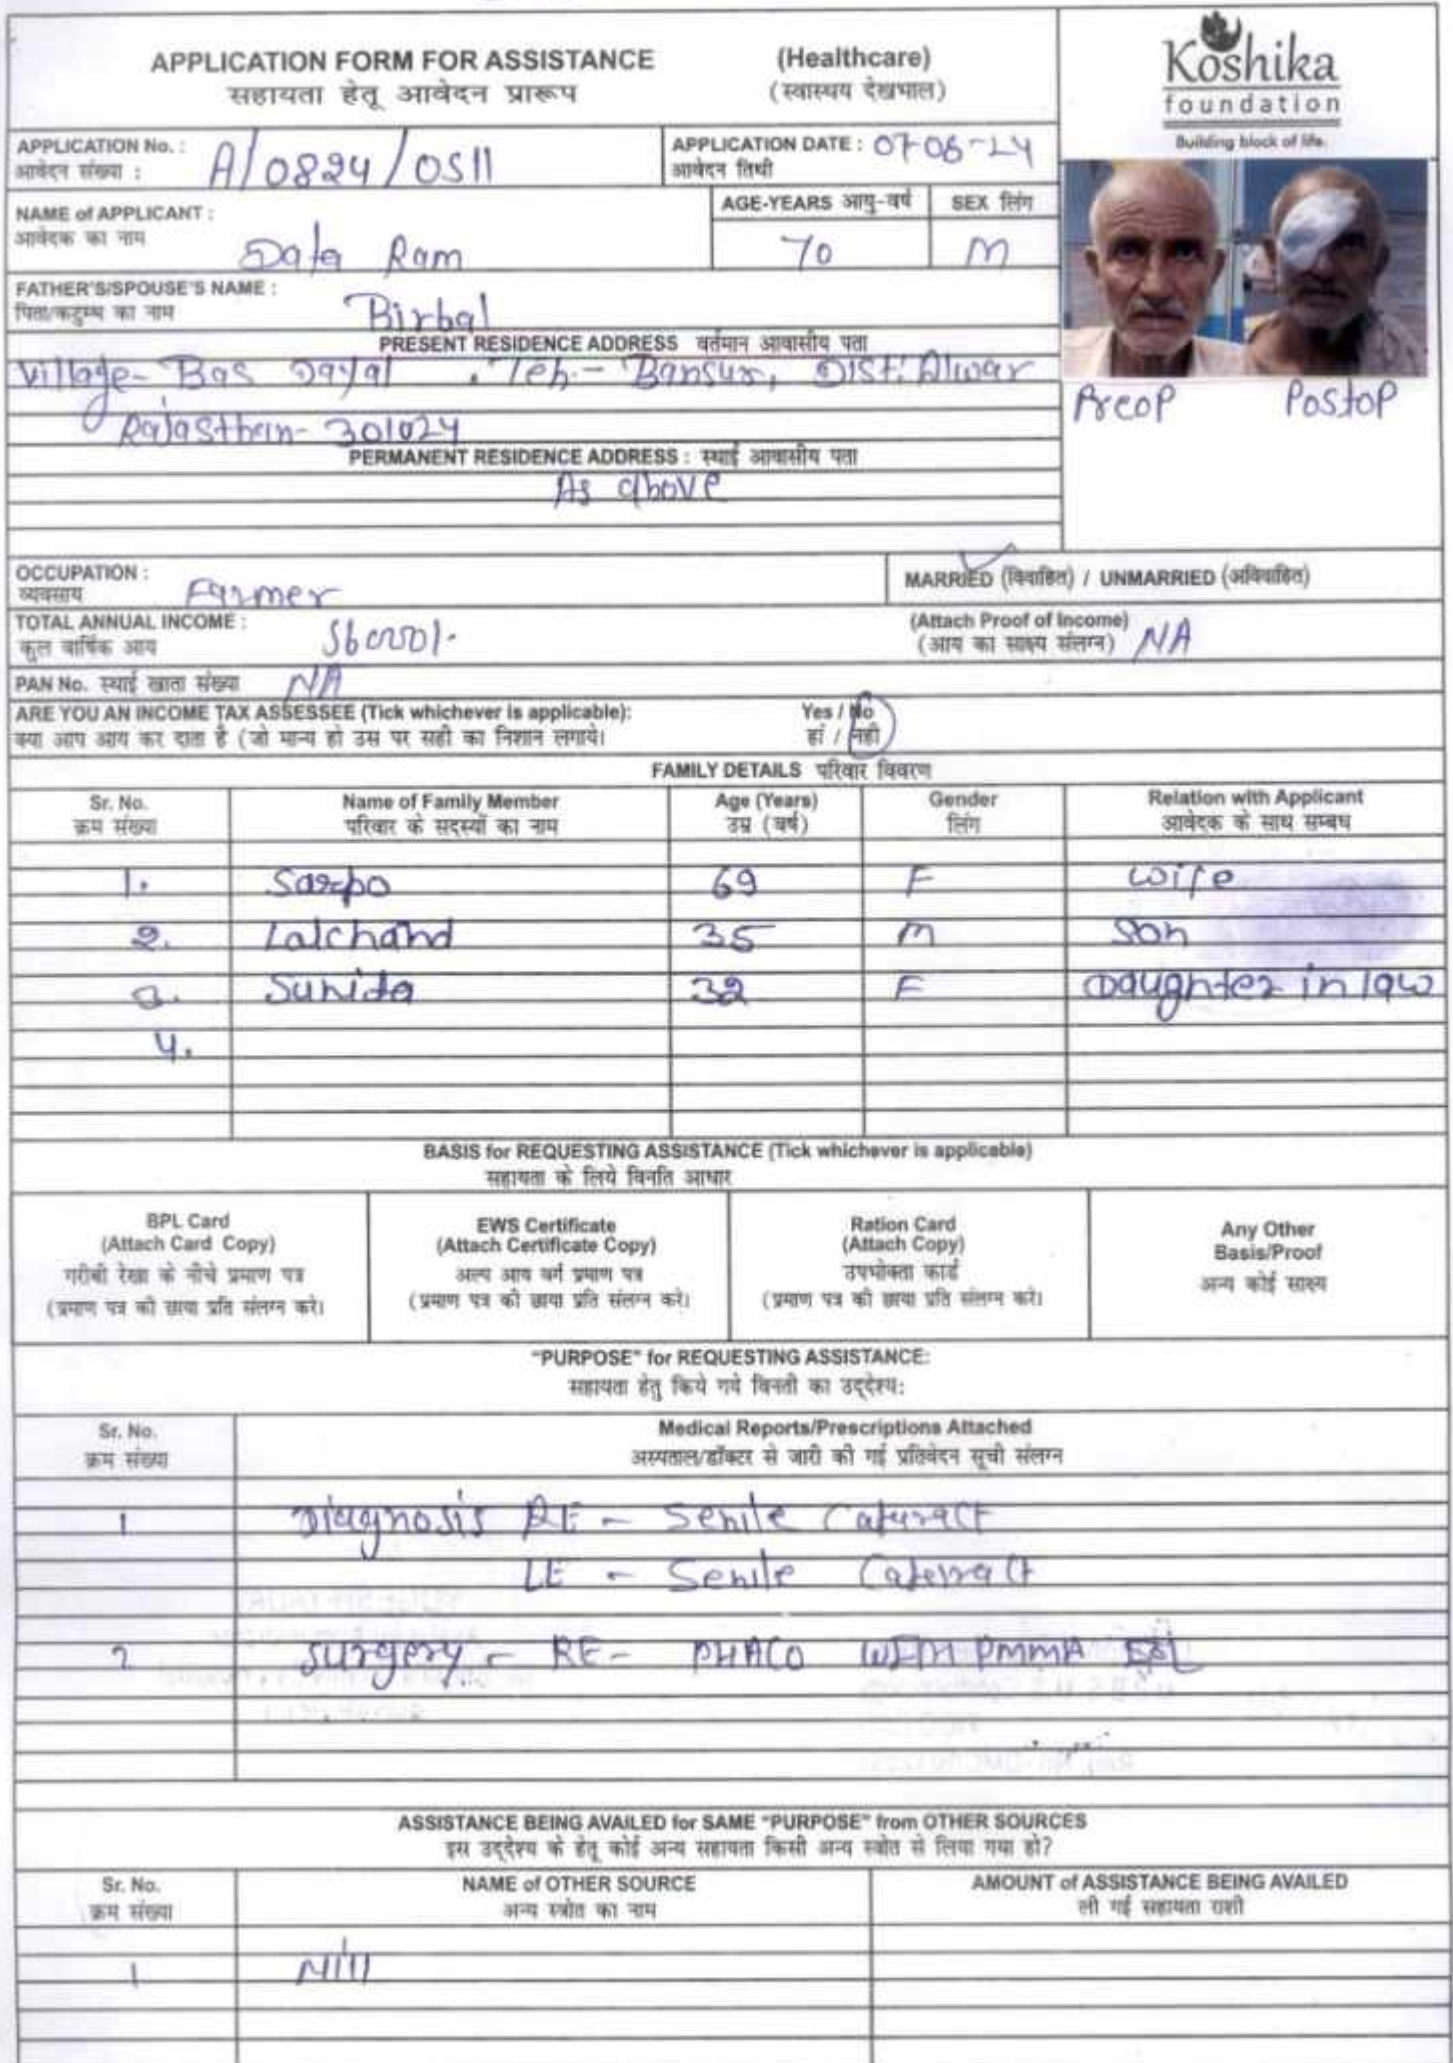 APPLICATION FORM FOR ASSISTANCE (Healthcare)
सहायता हेतू आवेदन प्रारूप (स्वास्थय देखभाल)
Koshika
foundation
Building block of life.
APPLICATION No. : A/0824/0511
आवेदन संख्या :
APPLICATION DATE : 07-06-24
आवेदन तिथी
NAME of APPLICANT :
आवेदक का नाम
Data Ram
AGE-YEARS आयु-वर्ष
70
SEX लिंग
M
FATHER'S/SPOUSE'S NAME :
पिता/कटुम्ब का नाम
Birbal
PRESENT RESIDENCE ADDRESS वर्तमान आवासीय पता
Village- Bas Dayal , Teh.- Bansur, Dist. Alwar
Rajasthan- 301024
Preop Postop
PERMANENT RESIDENCE ADDRESS : स्थाई आवासीय पता
As above
OCCUPATION :
व्यवसाय
Farmer
MARRIED (विवाहित) / UNMARRIED (अविवाहित)
TOTAL ANNUAL INCOME :
कुल वार्षिक आय
(Attach Proof of Income)
(आय का साक्ष्य संलग्न) NA
PAN No. स्थाई खाता संख्या NA
ARE YOU AN INCOME TAX ASSESSEE (Tick whichever is applicable): Yes / No
क्या आप आय कर दाता है (जो मान्य हो उस पर सही का निशान लगाये। हां / नही
FAMILY DETAILS परिवार विवरण
Sr. No. Name of Family Member Age (Years) Gender Relation with Applicant
क्रम संख्या परिवार के सदस्यों का नाम उम्र (वर्ष) लिंग आवेदक के साथ सम्बध
1. Sarpo 69 F wife
2. Lalchand 35 M son
3. Sunita 32 F Daughter in law
4.
BASIS for REQUESTING ASSISTANCE (Tick whichever is applicable)
सहायता के लिये विनति आधार
BPL Card
(Attach Card Copy)
गरीबी रेखा के नीचे प्रमाण पत्र
(प्रमाण पत्र की छाया प्रति संलग्न करे।
EWS Certificate
(Attach Certificate Copy)
अल्प आय वर्ग प्रमाण पत्र
(प्रमाण पत्र की छाया प्रति संलग्न करे।
Ration Card
(Attach Copy)
उपभोक्ता कार्ड
(प्रमाण पत्र की छाया प्रति संलग्न करे।
Any Other
Basis/Proof
अन्य कोई साक्ष्य
"PURPOSE" for REQUESTING ASSISTANCE:
सहायता हेतु किये गये विनती का उद्देश्य:
Sr. No. Medical Reports/Prescriptions Attached
क्रम संख्या अस्पताल/डॉक्टर से जारी की गई प्रतिवेदन सूची संलग्न
1 Diagnosis RE - Senile Cataract
LE - Senile Cataract
2 Surgery - RE- PHACO WITH PMMA
ASSISTANCE BEING AVAILED for SAME "PURPOSE" from OTHER SOURCES
इस उद्देश्य के हेतू कोई अन्य सहायता किसी अन्य स्त्रोत से लिया गया हो?
Sr. No. NAME of OTHER SOURCE AMOUNT of ASSISTANCE BEING AVAILED
क्रम संख्या अन्य स्त्रोत का नाम ली गई सहायता राशी
1 Nill